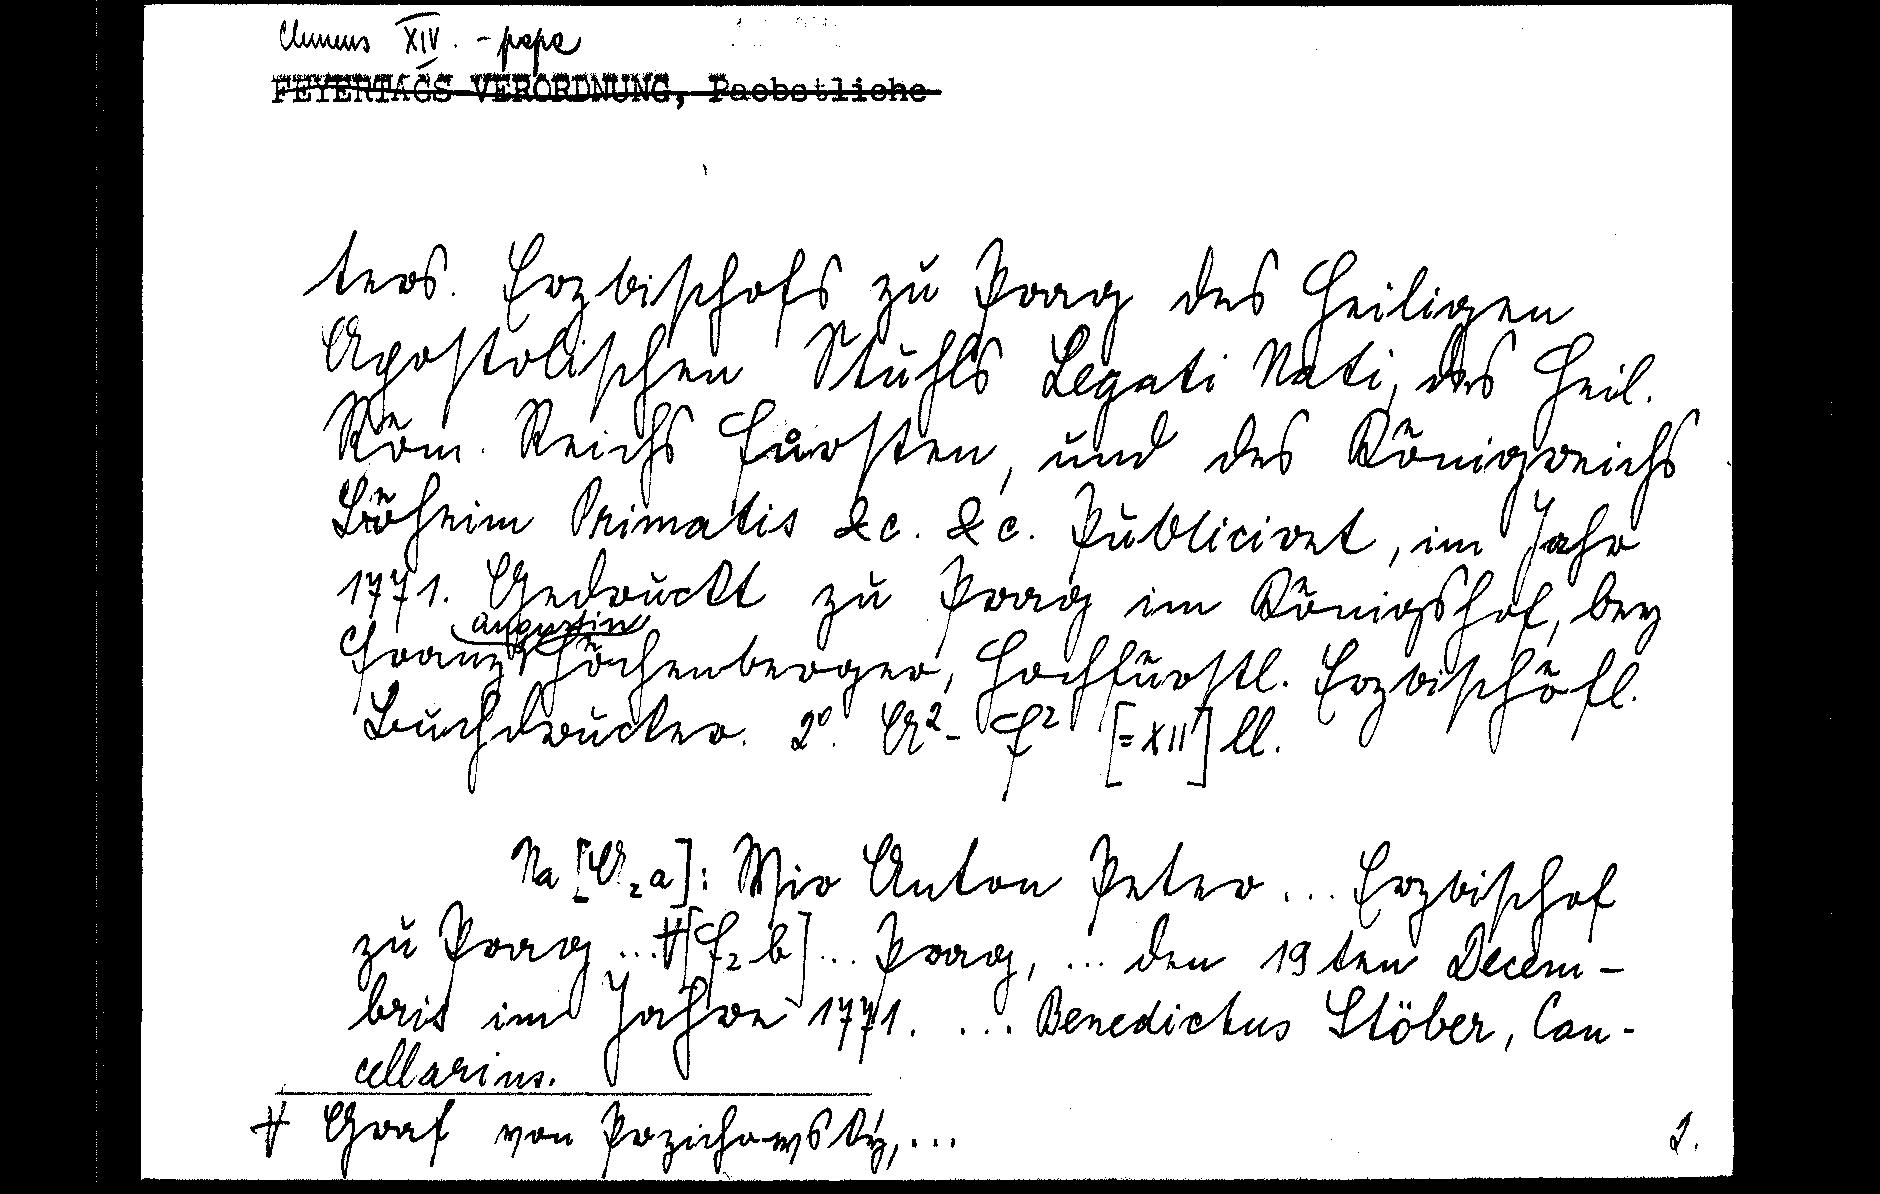 Clemens XIV. - papa
FEYERTAGS-VERORDNUNG, Paebstliche
ters. Erzbischofs zu Prag des Heiligen
Apostolischen Stuhls Legati Nati, des Heil.
Röm. Reichs Fürsten, und des Königreichs
Böheim Primatis &c. &c. Publiciret, im Jahr
1771. Gedruckt zu Prag im Königshof, bey
augustin
Franz Höchenberger, Hochfürstl. Erzbischöfl.
Buchdrucker. 2°. A²- F² [=XII] ll.
Na [A₂a]: Wir Anton Peter ... Erzbischof
zu Prag ... [F₂b] ... Prag, ... den 19ten Decem-
bris im Jahre 1771. ... Benedictus Stöber, Can-
cellarius.
Graf von Przichowsky, ...
2.